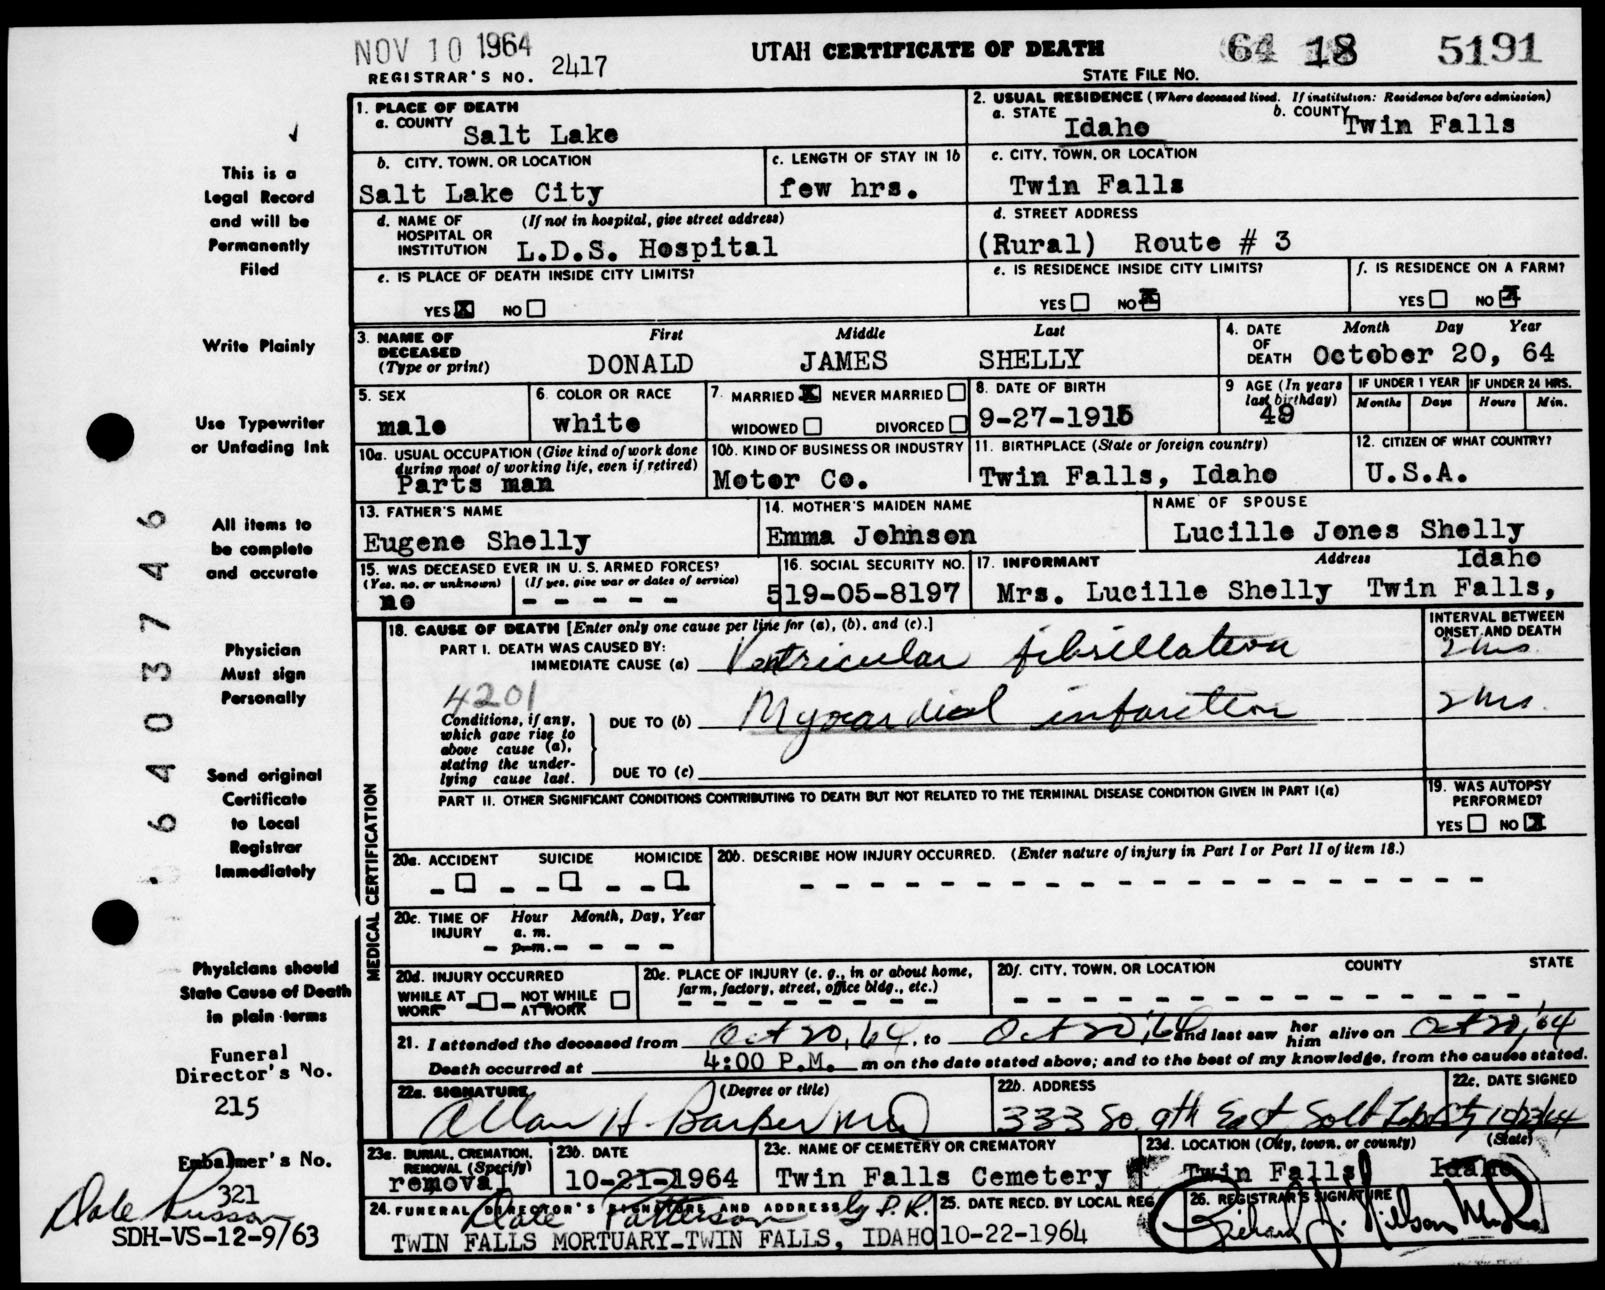 NOV 10 1964
REGISTRAR'S NO. 2417
UTAH CERTIFICATE OF DEATH
STATE FILE NO. 64 18 5191
This is a
Legal Record
and will be
Permanently
Filed
Write Plainly
Use Typewriter
or Unfading Ink
All items to
be complete
and accurate
Physician
Must sign
Personally
Send original
Certificate
to Local
Registrar
Immediately
Physicians should
State Cause of Death
in plain terms
Funeral
Director's No.
215
Embalmer's No.
321
Dale
SDH-VS-12-9/63
6403746
1. PLACE OF DEATH
a. COUNTY Salt Lake
2. USUAL RESIDENCE (Where deceased lived. If institution: Residence before admission)
a. STATE Idaho b. COUNTY Twin Falls
b. CITY, TOWN, OR LOCATION
Salt Lake City
c. LENGTH OF STAY IN 1b
few hrs.
c. CITY, TOWN, OR LOCATION
Twin Falls
d. NAME OF HOSPITAL OR INSTITUTION (If not in hospital, give street address)
L.D.S. Hospital
d. STREET ADDRESS
(Rural) Route # 3
e. IS PLACE OF DEATH INSIDE CITY LIMITS?
YES X NO
e. IS RESIDENCE INSIDE CITY LIMITS?
YES NO X
f. IS RESIDENCE ON A FARM?
YES NO X
3. NAME OF DECEASED (Type or print)
First Middle Last
DONALD JAMES SHELLY
4. DATE OF DEATH Month Day Year
October 20, 64
5. SEX
male
6. COLOR OR RACE
white
7. MARRIED X NEVER MARRIED
WIDOWED DIVORCED
8. DATE OF BIRTH
9-27-1915
9 AGE (In years last birthday)
49
IF UNDER 1 YEAR
Months Days
IF UNDER 24 HRS.
Hours Min.
10a. USUAL OCCUPATION (Give kind of work done during most of working life, even if retired)
Parts man
10b. KIND OF BUSINESS OR INDUSTRY
Motor Co.
11. BIRTHPLACE (State or foreign country)
Twin Falls, Idaho
12. CITIZEN OF WHAT COUNTRY?
U.S.A.
13. FATHER'S NAME
Eugene Shelly
14. MOTHER'S MAIDEN NAME
Emma Johnson
NAME OF SPOUSE
Lucille Jones Shelly
15. WAS DECEASED EVER IN U.S. ARMED FORCES?
(Yes, no, or unknown) (If yes, give war or dates of service)
no - - - - -
16. SOCIAL SECURITY NO.
519-05-8197
17. INFORMANT Address
Mrs. Lucille Shelly Twin Falls, Idaho
MEDICAL CERTIFICATION
18. CAUSE OF DEATH [Enter only one cause per line for (a), (b), and (c).]
INTERVAL BETWEEN ONSET AND DEATH
PART I. DEATH WAS CAUSED BY:
IMMEDIATE CAUSE (a) Ventricular fibrillation 2 hrs
4201
Conditions, if any, which gave rise to above cause (a), stating the underlying cause last.
DUE TO (b) Myocardial infarction 2 hrs.
DUE TO (c)
PART II. OTHER SIGNIFICANT CONDITIONS CONTRIBUTING TO DEATH BUT NOT RELATED TO THE TERMINAL DISEASE CONDITION GIVEN IN PART I(a)
19. WAS AUTOPSY PERFORMED?
YES NO X
20a. ACCIDENT SUICIDE HOMICIDE
20b. DESCRIBE HOW INJURY OCCURRED. (Enter nature of injury in Part I or Part II of item 18.)
20c. TIME OF INJURY Hour Month, Day, Year
a. m.
p. m.
20d. INJURY OCCURRED
WHILE AT WORK NOT WHILE AT WORK
20e. PLACE OF INJURY (e. g., in or about home, farm, factory, street, office bldg., etc.)
20f. CITY, TOWN, OR LOCATION COUNTY STATE
21. I attended the deceased from Oct 20, 64, to Oct 20, 64 and last saw her him alive on Oct 20, '64
Death occurred at 4:00 P.M. m on the date stated above; and to the best of my knowledge, from the causes stated.
22a. SIGNATURE (Degree or title)
Allan H. Barker MD
22b. ADDRESS
333 So. 9th East, Salt Lake City
22c. DATE SIGNED
23a. BURIAL, CREMATION, REMOVAL (Specify)
removal
23b. DATE
10-21-1964
23c. NAME OF CEMETERY OR CREMATORY
Twin Falls Cemetery
23d. LOCATION (City, town, or county) (State)
Twin Falls Idaho
24. FUNERAL DIRECTOR'S SIGNATURE AND ADDRESS
Dale Patterson by P.R.
TWIN FALLS MORTUARY-TWIN FALLS, IDAHO
25. DATE RECD. BY LOCAL REG.
10-22-1964
26. REGISTRAR'S SIGNATURE
Richard J. Nilson